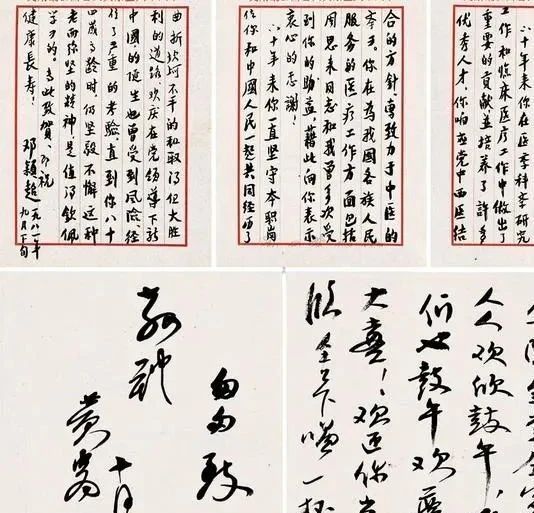 六十年来你在医学科学研究
工作和临床医疗工作中做出了
重要的贡献並培养了许多
优秀人才。你响应党中西医结
合的方针,專致力于中医的
你在為我國各族人民
服務的医疗工作方面包括
周恩来同志和我曾多次受
到你的助益,藉此向你表示
衷心的感谢!
六十年来你一直坚守本职岗
位你和中國人民一起共同经历了
曲折坎坷不平的和取得但大胜
利的道路。欢庆在党领导下新
中國的诞生也曾受到风险经
行了严重的考验直到你八十
四歲高龄时仍坚毅不懈这种
老而弥坚的精神,是值得钦佩
学习的。专此致贺,即祝
健康長寿!
邓颖超 一九八七年
九月下旬
人人欢欣鼓午,
们也鼓午欢
大喜!欢迎你
下 一杯
匆匆致
敬礼
黄
十月